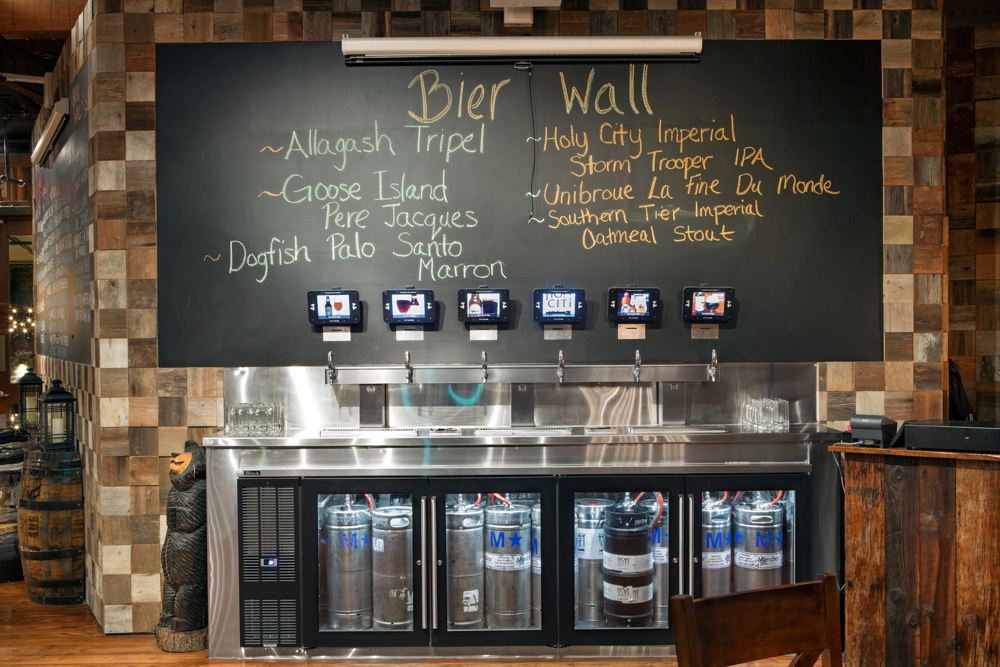 Bier Wall
~Allagash Tripel
~Goose Island
Pere Jacques
~Dogfish Palo Santo
Marron
~Holy City Imperial
Storm Trooper IPA
~Unibroue La Fine Du Monde
~Southern Tier Imperial
Oatmeal Stout
CITI
M★
M★
M★
M★